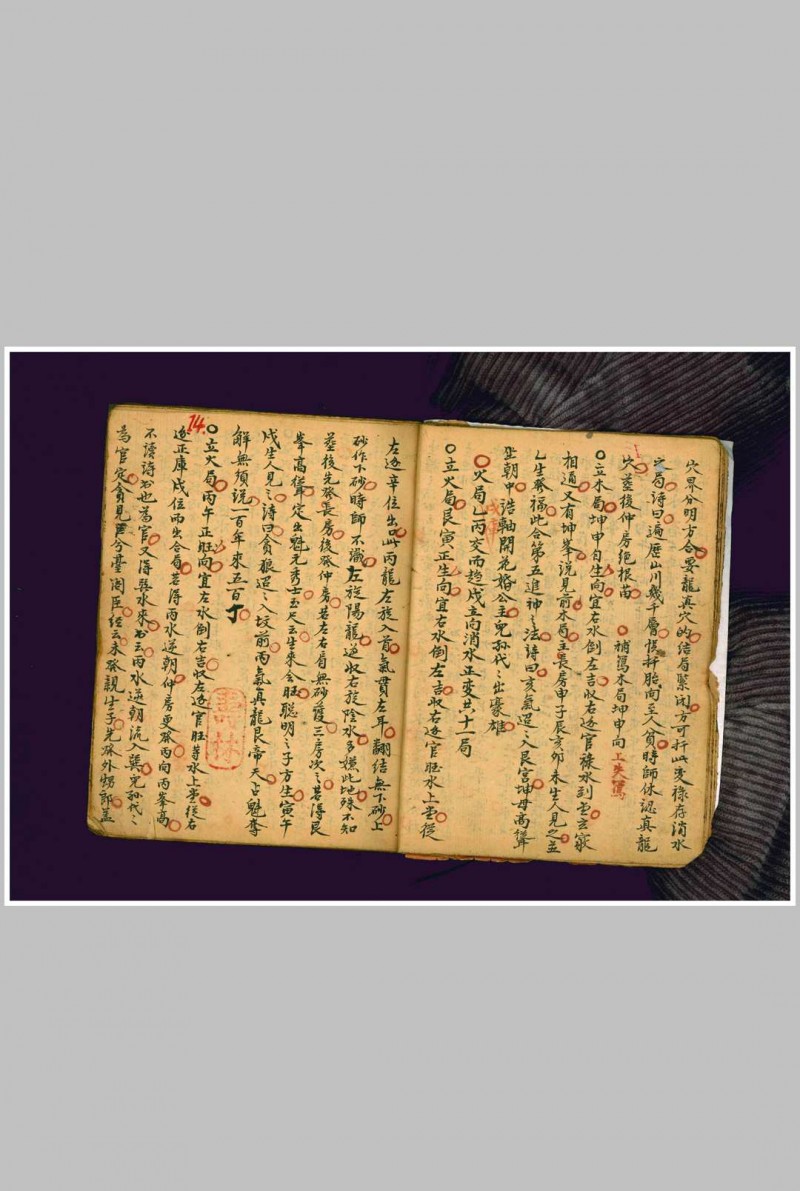 穴界分明方合妥龍真穴的結局緊閉方可扦此变祿存消水
穴局詩曰遍歷山川幾千層悞扦胎向至人貧時師休認真龍
穴葬後仲房絕根苗 ○補寫木局坤申向上失寫
○立木局坤申自生向宜右水倒左吉收右邊官祿水到堂玄竅
相通又有坤峯說見前木局主長房申子辰亥卯未生人見之並
乙生發福此合第五進神之法詩曰亥氣迢之入艮宮坤母高聳
坐朝中誥軸開花婚公主兒孫代之出豪雄
○火局乙丙交而趨戌立向消水正变共十一局
○立火局艮寅正生向宜右水倒左吉收右邊官旺水上堂從
左邊辛位出此丙龍左旋入首氣貫左耳翻結無下砂上
砂作下砂時師不識左旋陽龍逆收右旋陰水多嫌此地殊不知
葬後先發長房後發仲房若左右肩無砂護三房次之若得艮
峯高聳定出魁元秀士玉尺云生來會旺聰明之子方生寅午
戌生人見之詩曰貪狼迢之入坟前丙氣真龍艮帝天占魁奪
解無煩說一百年來五百丁
14.
○立火局丙午正旺向宜左水倒右吉收左邊官旺等水上堂從右
邊正庫戌位而出合局若得丙水逆朝仲房更發丙向丙峯高
不讀詩書也為官又得巽水來書云丙水逆朝流入巽兒孫代之
為官定貪見 兮臺閣臣經云未發親生子先發外甥郎蓋
壽林